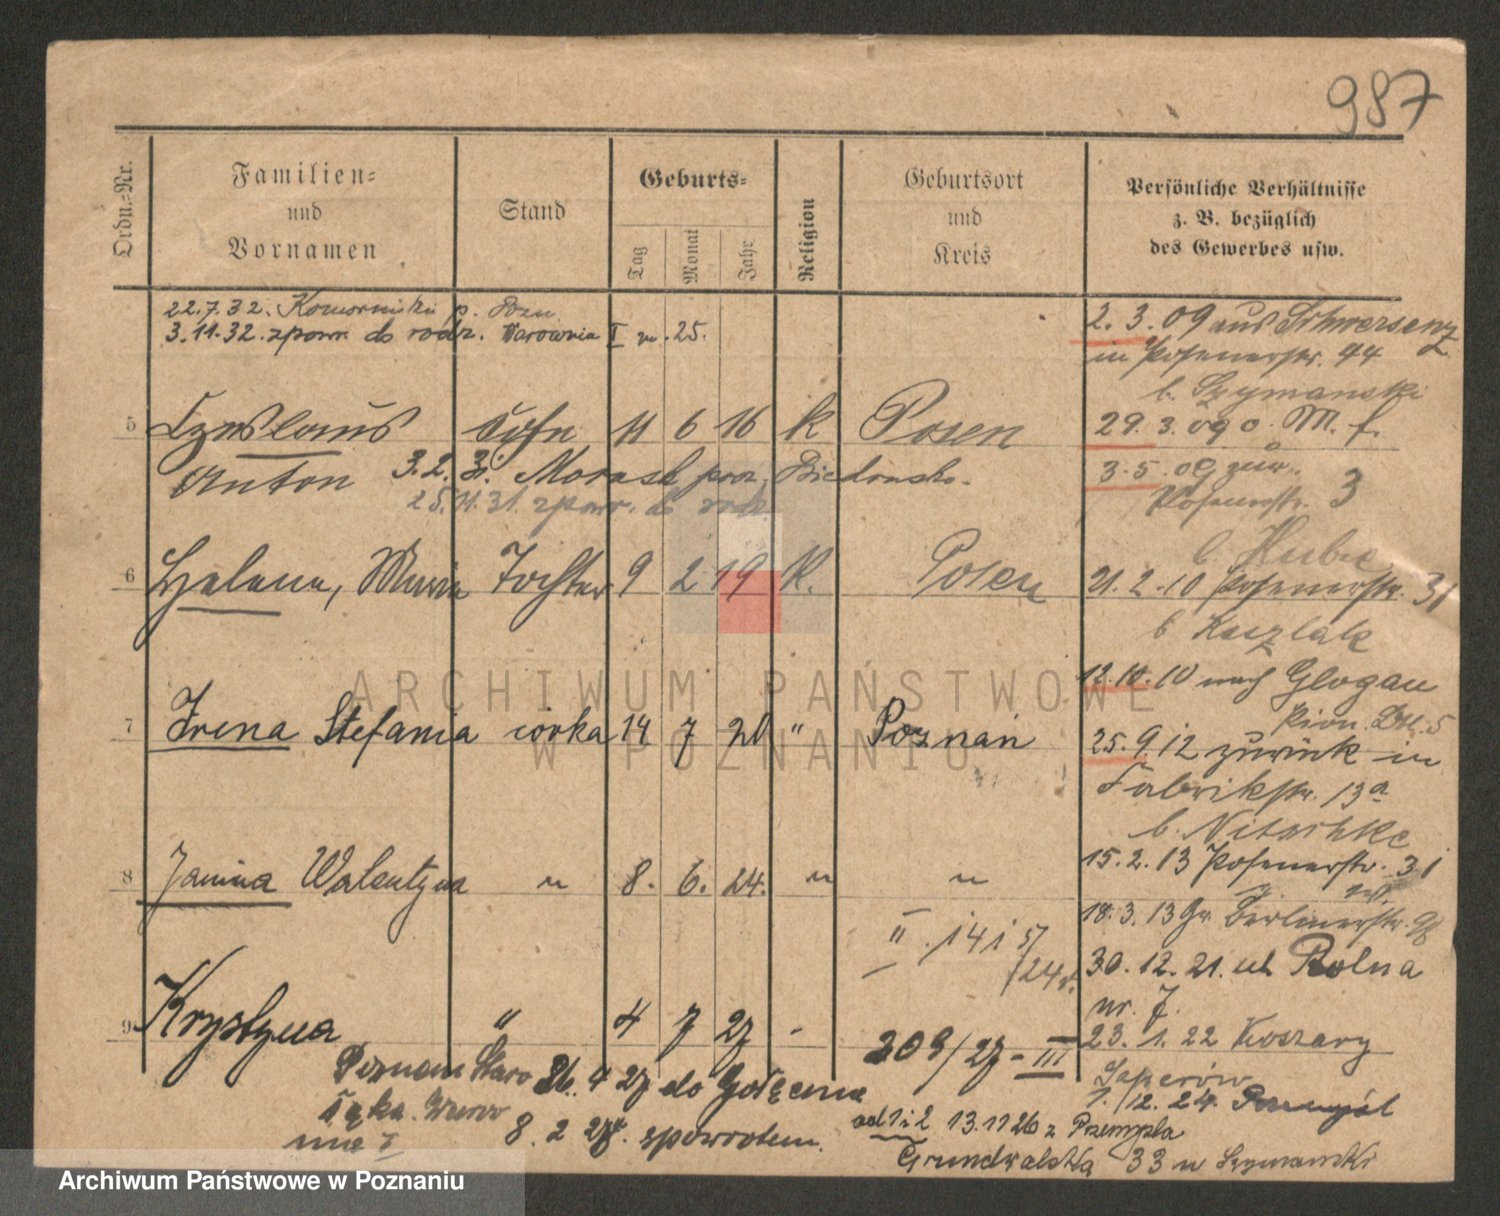 987
Ordn.-Nr.
Familien-
und
Vornamen
Stand
Geburts-
Tag
Monat
Jahr
Religion
Geburtsort
und
Kreis
Persönliche Verhältnisse
z. B. bezüglich
des Gewerbes usw.
22.7.32. Komorniki p. Pozn.
3.11.32. zpowr. do rodz. Warownia I 25.
5 Czeslaus Sohn 11 6 16 k Posen
Anton 3.2.3. Morasko pow. Biedrusko.
25.11.31. zpowr. do rodz.
6 Helena, Maria Tochter 9 2 19 K. Posen
7 Irena Stefania córka 14 7 20 " Poznań
8 Janina Walentyna " 8. 6. 24. " "
II. 141 57
/24
9 Krystyna " 4 7 27 -
309/27 - III
Poznań Staro 26. 4 27 do Golęcina
łęka.
8. 2 28. zpowrotem.
2.3.09 aus Schwersenz
in Posenerstr. 44
b. Szymanski
29.3.09 o. M. f.
3.5.09 zur.
Posenerstr. 3
b. Kube
21.2.10 Posenerstr. 31
b Kaczlak
12.10.10 nach Glogau
Pion. Btl. 5
25.9.12 zurück in
Fabrikstr. 13a
b. Nitschke
15.2.13 Posenerstr. 31
18.3.13 Gr. Berlinerstr. 98
30.12.21. ul Rolna
nr. 7.
23.1.22 Koszary
Saperów
1./12.24. Przemyśl
od 1 i 2 13.11 26 z Przemyśla
Grunwaldzka 33 u Szymański
ARCHIWUM PAŃSTWOWE
W POZNANIU
Archiwum Państwowe w Poznaniu